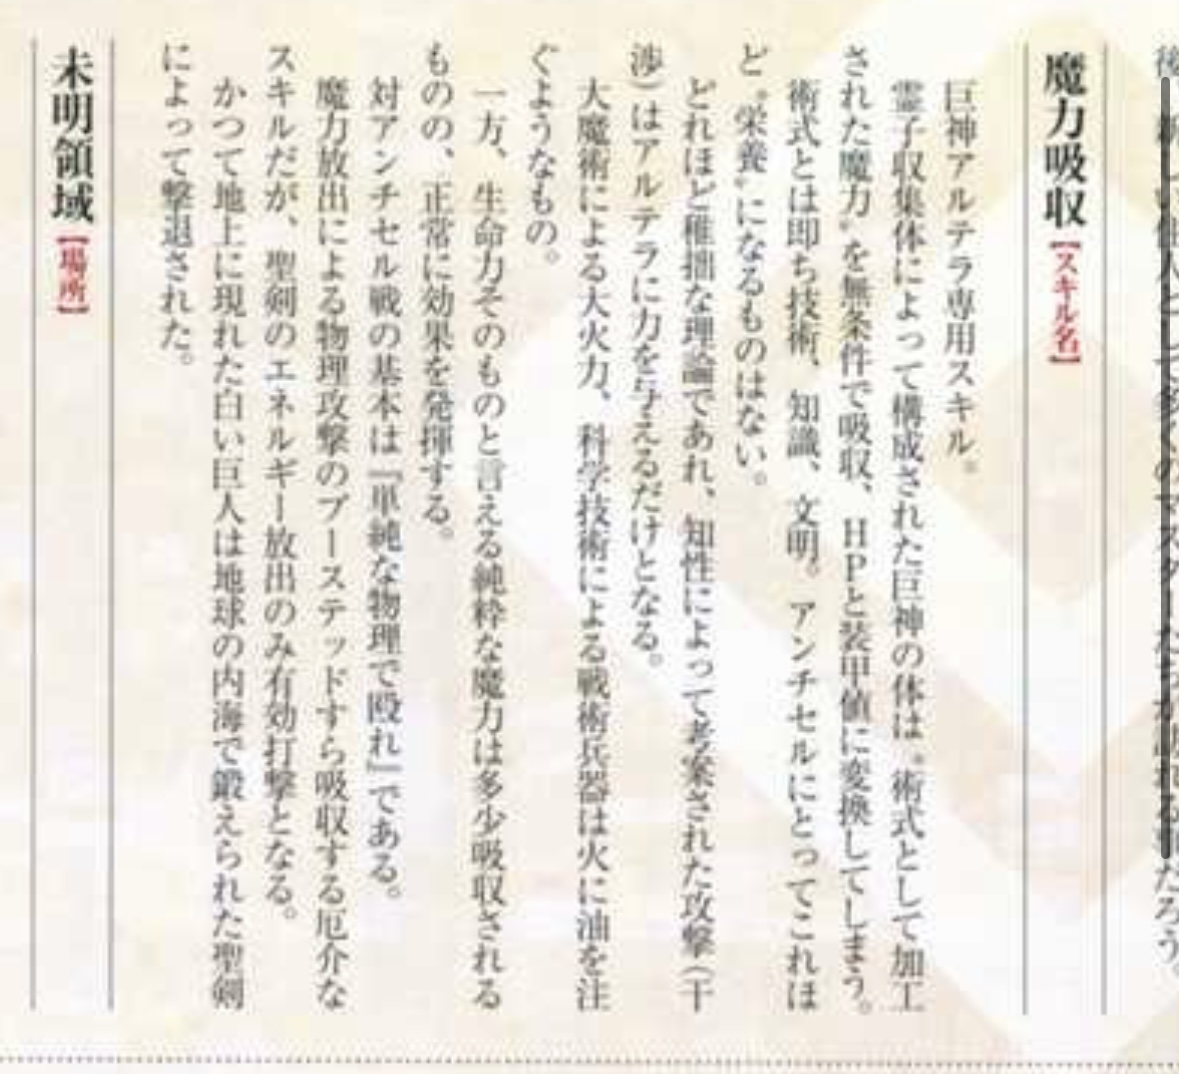 魔力吸収【スキル名】
巨神アルテラ専用スキル。
霊子収集体によって構成された巨神の体は〝術式として加工
された魔力〟を無条件で吸収、HPと装甲値に変換してしまう。
術式とは即ち技術、知識、文明。アンチセルにとってこれほ
ど〝栄養〟になるものはない。
どれほど稚拙な理論であれ、知性によって考案された攻撃(干
渉)はアルテラに力を与えるだけとなる。
大魔術による大火力、科学技術による戦術兵器は火に油を注
ぐようなもの。
一方、生命力そのものと言える純粋な魔力は多少吸収される
ものの、正常に効果を発揮する。
対アンチセル戦の基本は『単純な物理で殴れ』である。
魔力放出による物理攻撃のブーステッドすら吸収する厄介な
スキルだが、聖剣のエネルギー放出のみ有効打撃となる。
かつて地上に現れた白い巨人は地球の内海で鍛えられた聖剣
によって撃退された。
未明領域【場所】